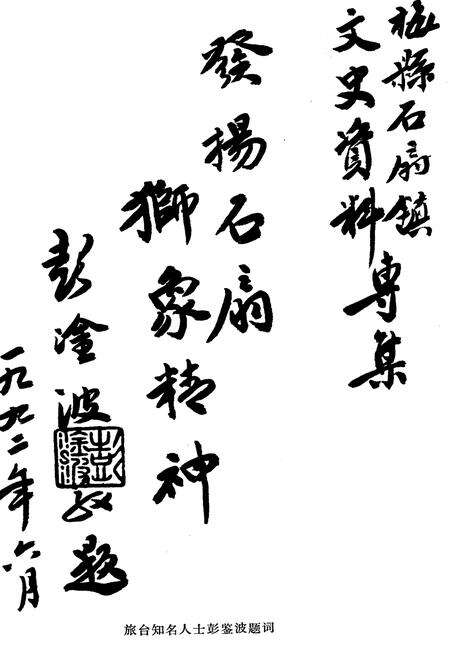 梅縣石扇鎮
文史資料專集
發揚石扇
獅象精神
彭淦波敬題
彭淦波
一九九二年六月
旅台知名人士彭鉴波题词